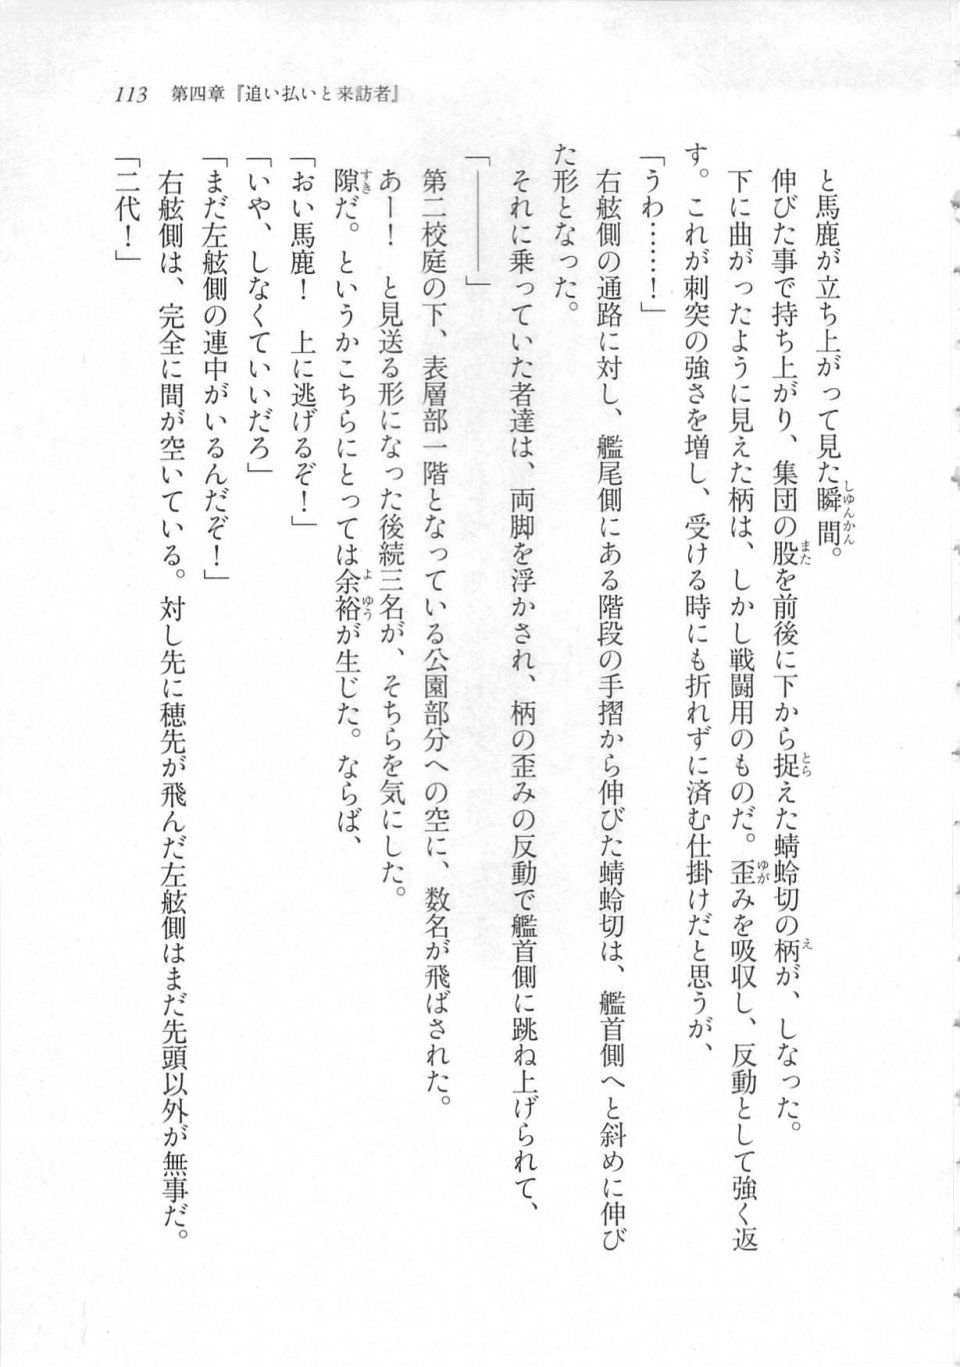 113 第四章『追い払いと来訪者』
と馬鹿が立ち上がって見た瞬間。
伸びた事で持ち上がり、集団の股を前後に下から捉えた蜻蛉切の柄が、しなった。
下に曲がったように見えた柄は、しかし戦闘用のものだ。歪みを吸収し、反動として強く返
す。これが刺突の強さを増し、受ける時にも折れずに済む仕掛けだと思うが、
「うわ……！」
右舷側の通路に対し、艦尾側にある階段の手摺から伸びた蜻蛉切は、艦首側へと斜めに伸び
た形となった。
それに乗っていた者達は、両脚を浮かされ、柄の歪みの反動で艦首側に跳ね上げられて、
「――――」
第二校庭の下、表層部一階となっている公園部分への空に、数名が飛ばされた。
あー！　と見送る形になった後続三名が、そちらを気にした。
隙だ。というかこちらにとっては余裕が生じた。ならば、
「おい馬鹿！　上に逃げるぞ！」
「いや、しなくていいだろ」
「まだ左舷側の連中がいるんだぞ！」
右舷側は、完全に間が空いている。対し先に穂先が飛んだ左舷側はまだ先頭以外が無事だ。
「二代！」